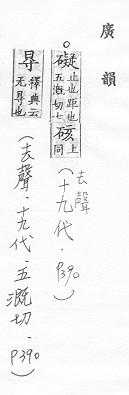 廣韻
。礙止也距也五溉切七硋上同(去聲十九代.P390)
㝵釋典云无㝵也(去聲.十九代.五溉切.P390)